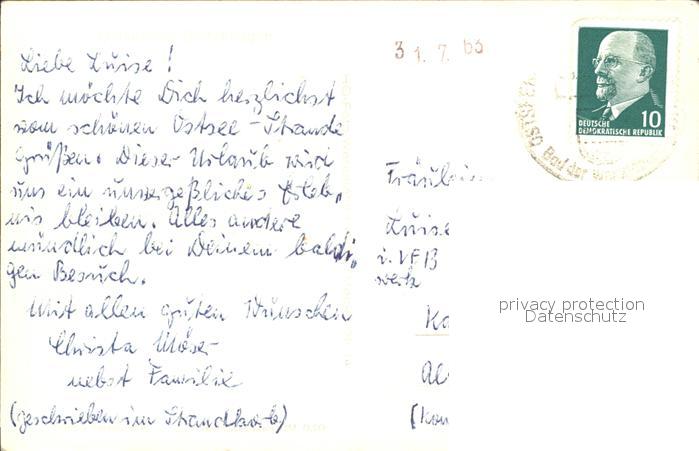 31.7.63
Liebe Luise!
Ich möchte Dich herzlichst
vom schönen Ostsee-Strande
grüßen. Dieser Urlaub wird
uns ein unvergeßliches Erleb-
nis bleiben. Alles andere
mündlich bei Deinem baldi-
gen Besuch.
Mit allen guten Wünschen
Christa Möser
nebst Familie
(geschrieben im Strandkorb)
10
DEUTSCHE
DEMOKRATISCHE REPUBLIK
OSTSEE
Bad der
Fräulein
Luise
i. VEB
werk
Ka
(Kon
privacy protection
Datenschutz